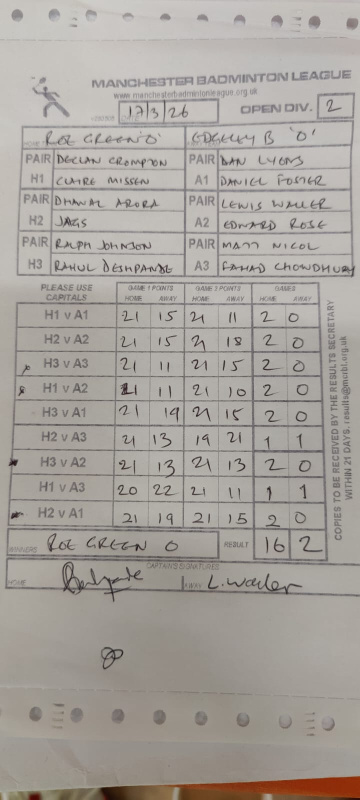 MANCHESTER BADMINTON LEAGUE
www.manchesterbadmintonleague.org.uk
17/3/26 OPEN DIV. 2
ROE GREEN 'O' EDGELEY B 'O'
PAIR DECLAN CROMPTON PAIR DAN LYONS
H1 CLAIRE MISSEN A1 DANIEL FOSTER
PAIR DHAVAL ARORA PAIR LEWIS WALLER
H2 JAGS A2 EDWARD ROSE
PAIR RALPH JOHNSON PAIR MATT NICOL
H3 RAHUL DESHPANDE A3 FAHAD CHOWDHURY
PLEASE USE CAPITALS GAME 1 POINTS GAME 2 POINTS GAMES
HOME AWAY HOME AWAY HOME AWAY
H1 v A1 21 15 21 11 2 0
H2 v A2 21 15 21 18 2 0
H3 v A3 21 11 21 15 2 0
H1 v A2 21 11 21 10 2 0
H3 v A1 21 19 21 15 2 0
H2 v A3 21 13 19 21 1 1
H3 v A2 21 13 21 13 2 0
H1 v A3 20 22 21 11 1 1
H2 v A1 21 19 21 15 2 0
WINNERS ROE GREEN O RESULT 16 2
CAPTAINS SIGNATURES
HOME AWAY L. Waller
COPIES TO BE RECEIVED BY THE RESULTS SECRETARY
WITHIN 21 DAYS. results@mcrbl.org.uk